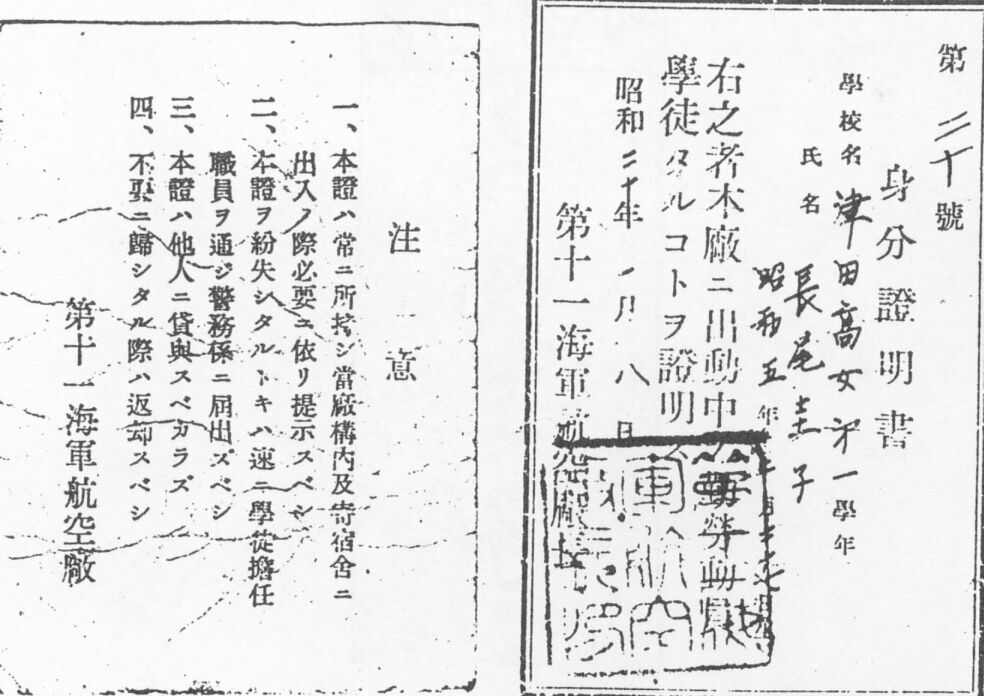 第二十號
身分證明書
學校名 津田高女 第一學年
氏名 長尾
昭和五年
右之者本廠ニ出動中ノ
學徒タルコトヲ證明ス
昭和二十年一月八日
第十一海軍航空廠長
注意
一、本證ハ常ニ所持シ當廠構内及寄宿舍ニ
出入ノ際必要ニ依リ提示スベシ
二、本證ヲ紛失シタルトキハ速ニ學徒擔任
職員ヲ通ジ警務係ニ屆出ズベシ
三、本證ハ他人ニ貸與スベカラズ
四、不要ニ歸シタル際ハ返却スベシ
第十一海軍航空廠